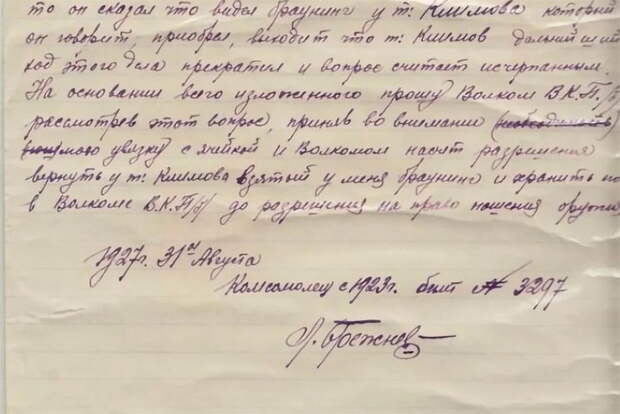 то он сказал что видел браунинг у т. Климова который
он говорит, приобрел, выходит что т. Климов дальнейший
ход этого дела прекратил и вопрос считает исчерпанным.
На основании всего изложенного прошу Волком В.К.П./б
рассмотрев этот вопрос, приняв во внимании
мою увязку с ячейкой и Волкомом насчет разрешения
вернуть у т. Климова взятый у меня браунинг и хранить
в Волкоме В.К.П/б/ до разрешения на право ношения
1927г. 31го Августа
Комсомолец с 1923г. билет № 3297
Л. Брежнев